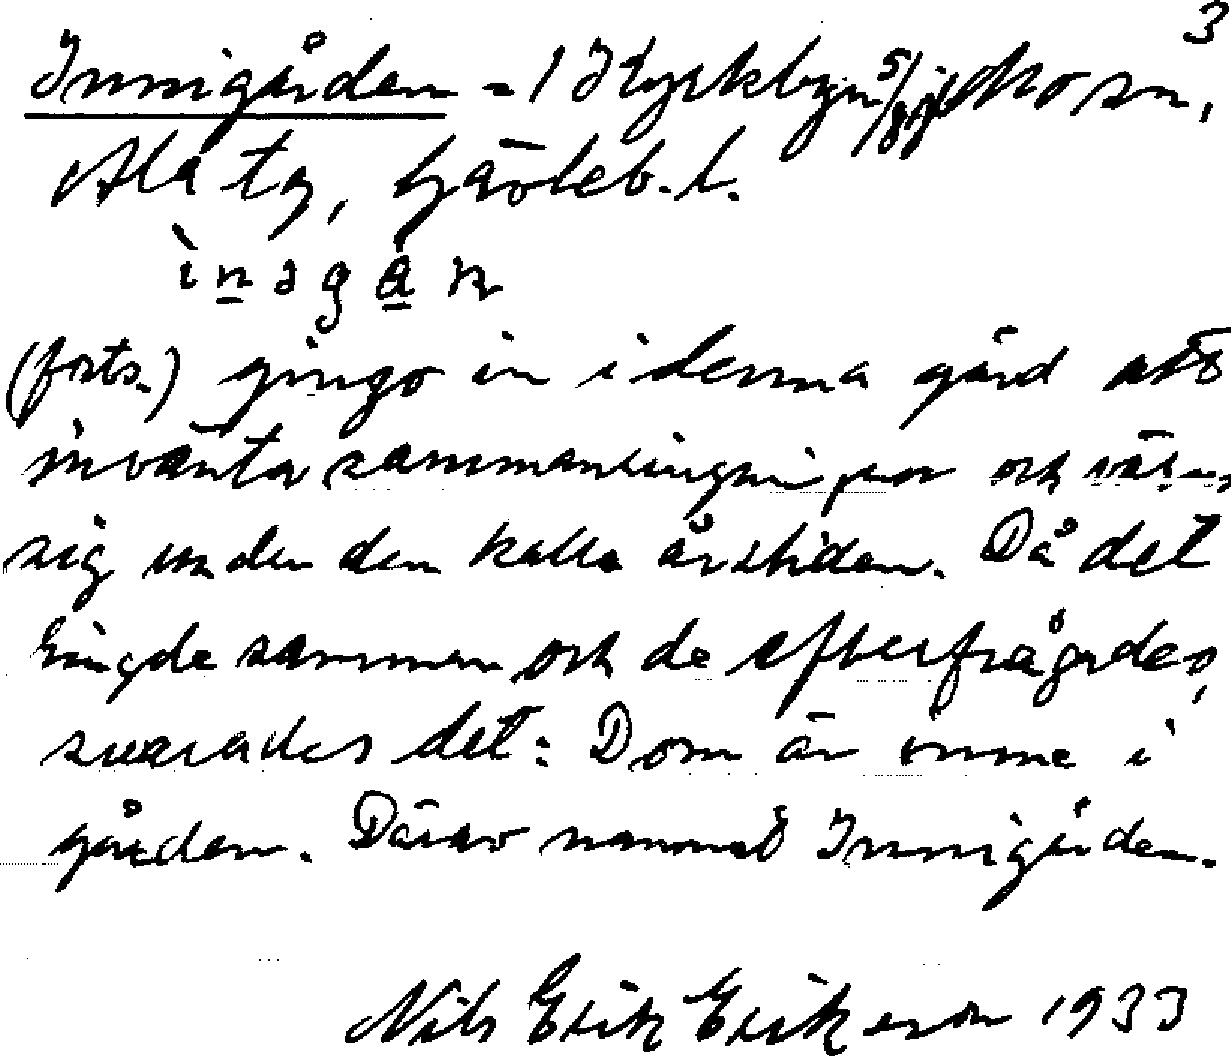 3
Innigården - I Kyrkbyn 5/8 Mo sn,
Ala tg, Gävleb. l.
(forts.) gingo in i denna gård att
invänta sammanringningen och värma
sig under den kalla årstiden. Då det
ringde samman och de efterfrågades,
svarades det: Dom är inne i
gården. Därav namnet Innigården.
Nils Erik Eriksson 1933